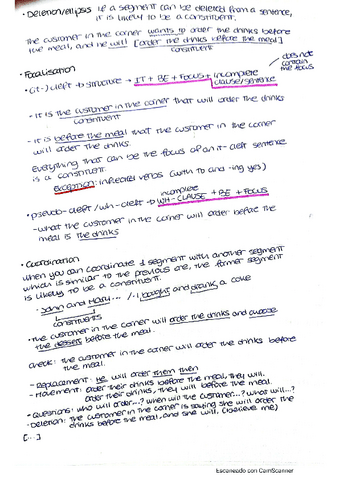 · Deletion/ellipsis If a segment can be deleted from a sentence,
it is likely to be a constituent.
The customer in the corner wants to order the drinks before
the meal, and he will [order the drinks before the meal]
constituent
· Focalisation
does not
contain
the focus
· (it-) cleft → structure → IT + BE + FOCUS + incomplete
clause/sentence
- it is the customer in the corner that will order the drinks
constituent
- it is before the meal that the customer in the corner
will order the drinks.
everything that can be the focus of an it-cleft sentence
is a constituent.
exception: inflected verbs (with to and -ing yes)
incomplete
· pseudo-cleft / wh-cleft → WH-CLAUSE + BE + FOCUS
- what the customer in the corner will order before the
meal is the drinks
· Coordination
when you can coordinate a segment with another segment
which is similar to the previous one, the former segment
is likely to be a constituent.
· John and Mary... / - I bought and drank a coke
constituents
· The customer in the corner will order the drinks and choose
the dessert before the meal.
check: the customer in the corner will order the drinks before
the meal.
- Replacement: He will order them then
- Movement: order their drinks before the meal, they will.
order their drinks, they will before the meal.
· Questions: who will order...? when will the customer...? what will...?
· Deletion: the customer in the corner is saying she will order the
drinks before the meal, and she will, (believe me)
[...]
Escaneado con CamScanner